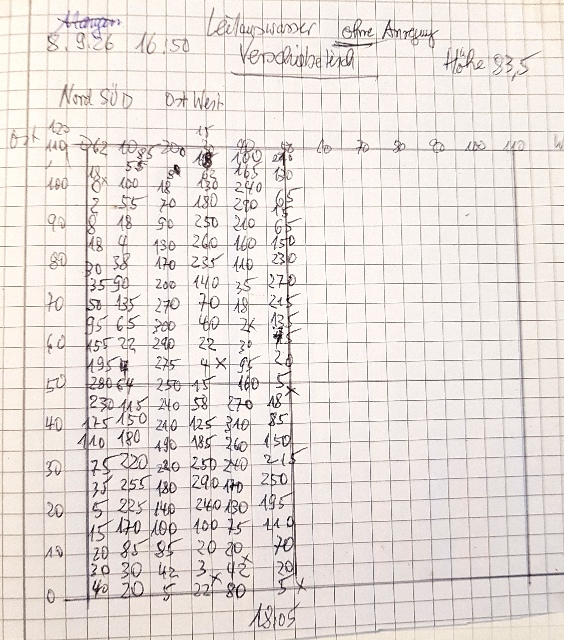 8.9.26 16:50 Leitungswasser ohne Anregung
Verschiebetisch Höhe 93,5
Nord SÜD Ost West
120 15
Ost 110 262 10 200 30 90 60 70 80 90 100 110 W
100 0 100 18 130 240
2 55 70 180 290 65
90 8 18 90 250 210 65
18 4 130 260 160 150
80 30 38 170 235 110 230
35 90 200 140 35 270
70 50 135 270 70 18 215
95 65 300 40 2x 135
60 155 22 290 22 30
195 4 275 4 x 95 20
50 280 64 250 15 160 5 x
230 115 240 58 270 18
40 175 150 210 125 310 85
110 180 190 185 260 150
30 75 220 220 250 240 215
35 255 180 290 170 250
20 5 225 140 240 130 195
15 170 100 100 75 110
10 20 85 85 20 20 70
30 30 42 3 x 42 20
0 40 20 5 22 80 5 x
18:05